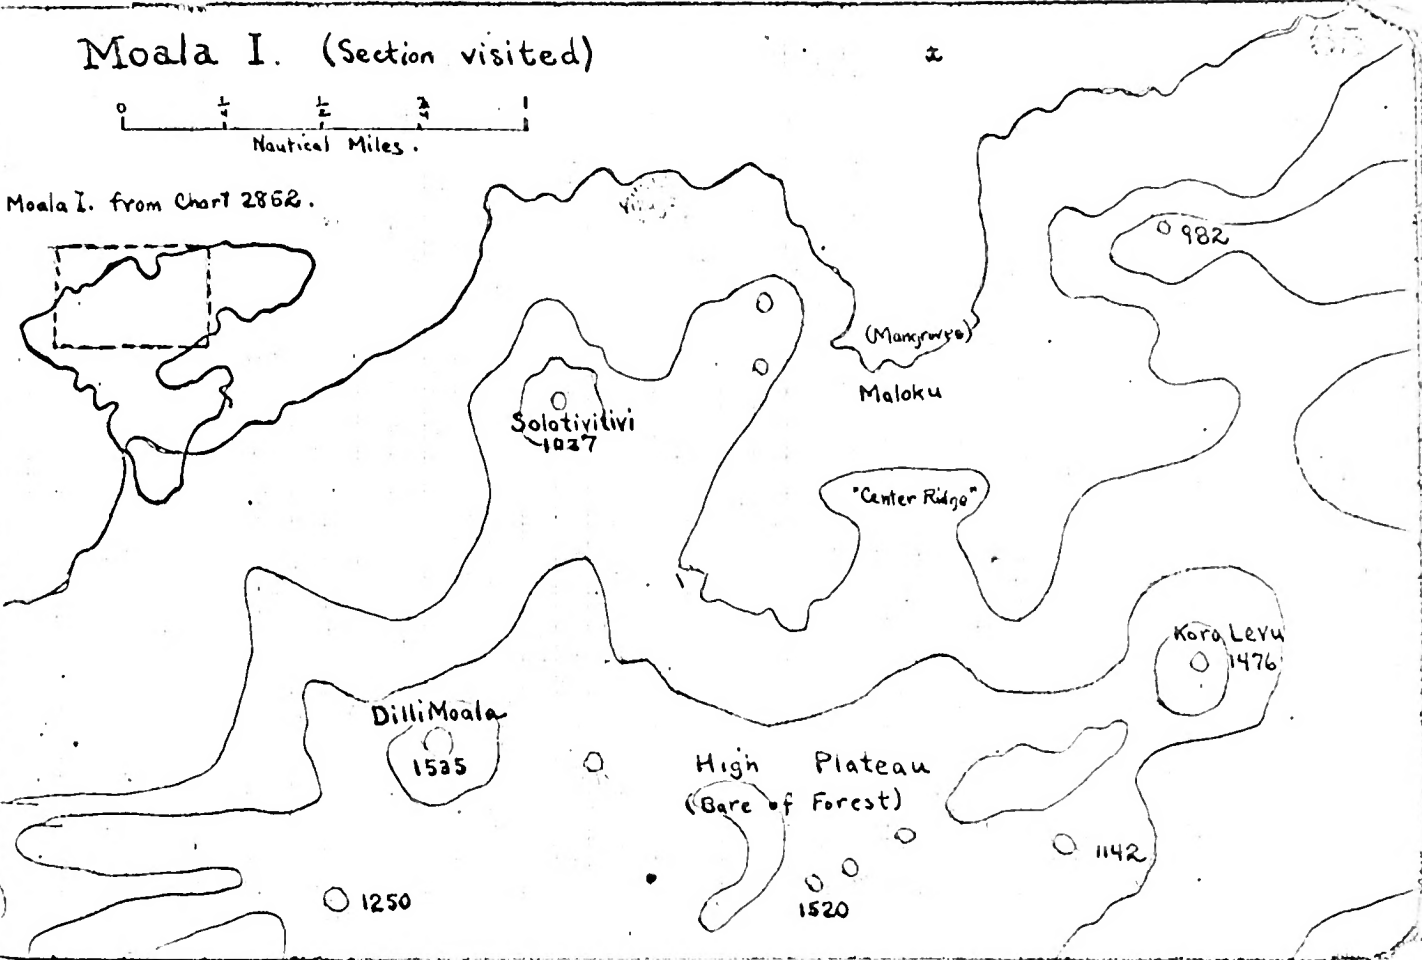 Moala I. (Section visited)
0 1/4 1/2 3/4 1
Nautical Miles.
Moala I. from Chart 2852.
982
(Mangroves)
Maloku
Solotivitivi
1037
"Center Ridge"
Koro Levu
1476
Dilli Moala
1535
High Plateau
(Bare of Forest)
1142
1250
1520